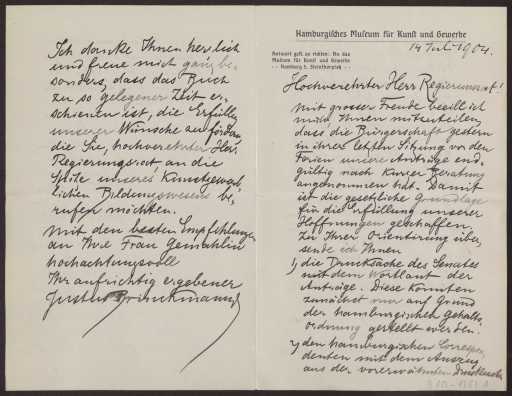 Hamburgisches Museum für Kunst und Gewerbe
Antwort gefl. zu richten: An das
Museum für Kunst und Gewerbe
-- Hamburg 5. Steintorplatz --
14 Juli 1904.
Hochverehrter Herr Regierungsrat!
Mit grosser Freude beeile ich
mich Ihnen mitzuteilen,
dass die Bürgerschaft gestern
in ihrer letzten Sitzung vor den
Ferien unsere Anträge end-
gültig nach kurzer Beratung
angenommen hat. Damit
ist die gesetzliche Grundlage
für die Erfüllung unserer
Hoffnungen geschaffen.
Zu Ihrer Orientirung über-
sende ich Ihnen
1) die Drucksache des Senates
mit dem Wortlaut der
Anträge. Diese konnten
zunächst nur auf Grund
der hamburgischen Gehalts-
ordnung gestellt werden.
2) den hamburgischen Correspon-
denten mit dem Auszug
aus der vorerwähnten Drucksache
Ich danke Ihnen herzlich
und freue mich ganz be-
sonders, dass das Buch
zu so gelegener Zeit er-
schienen ist, die Erfüllung
unserer Wünsche zu fördern
die Sie, hochverehrter Herr
Regierungsrat an die
Spitze unseres Kunstgewerb-
lichen Bildungswesens be-
rufen möchten.
Mit den besten Empfehlungen
an Ihre Frau Gemahlin
hochachtungsvoll
Ihr aufrichtig ergebener
Justus Brinckmann